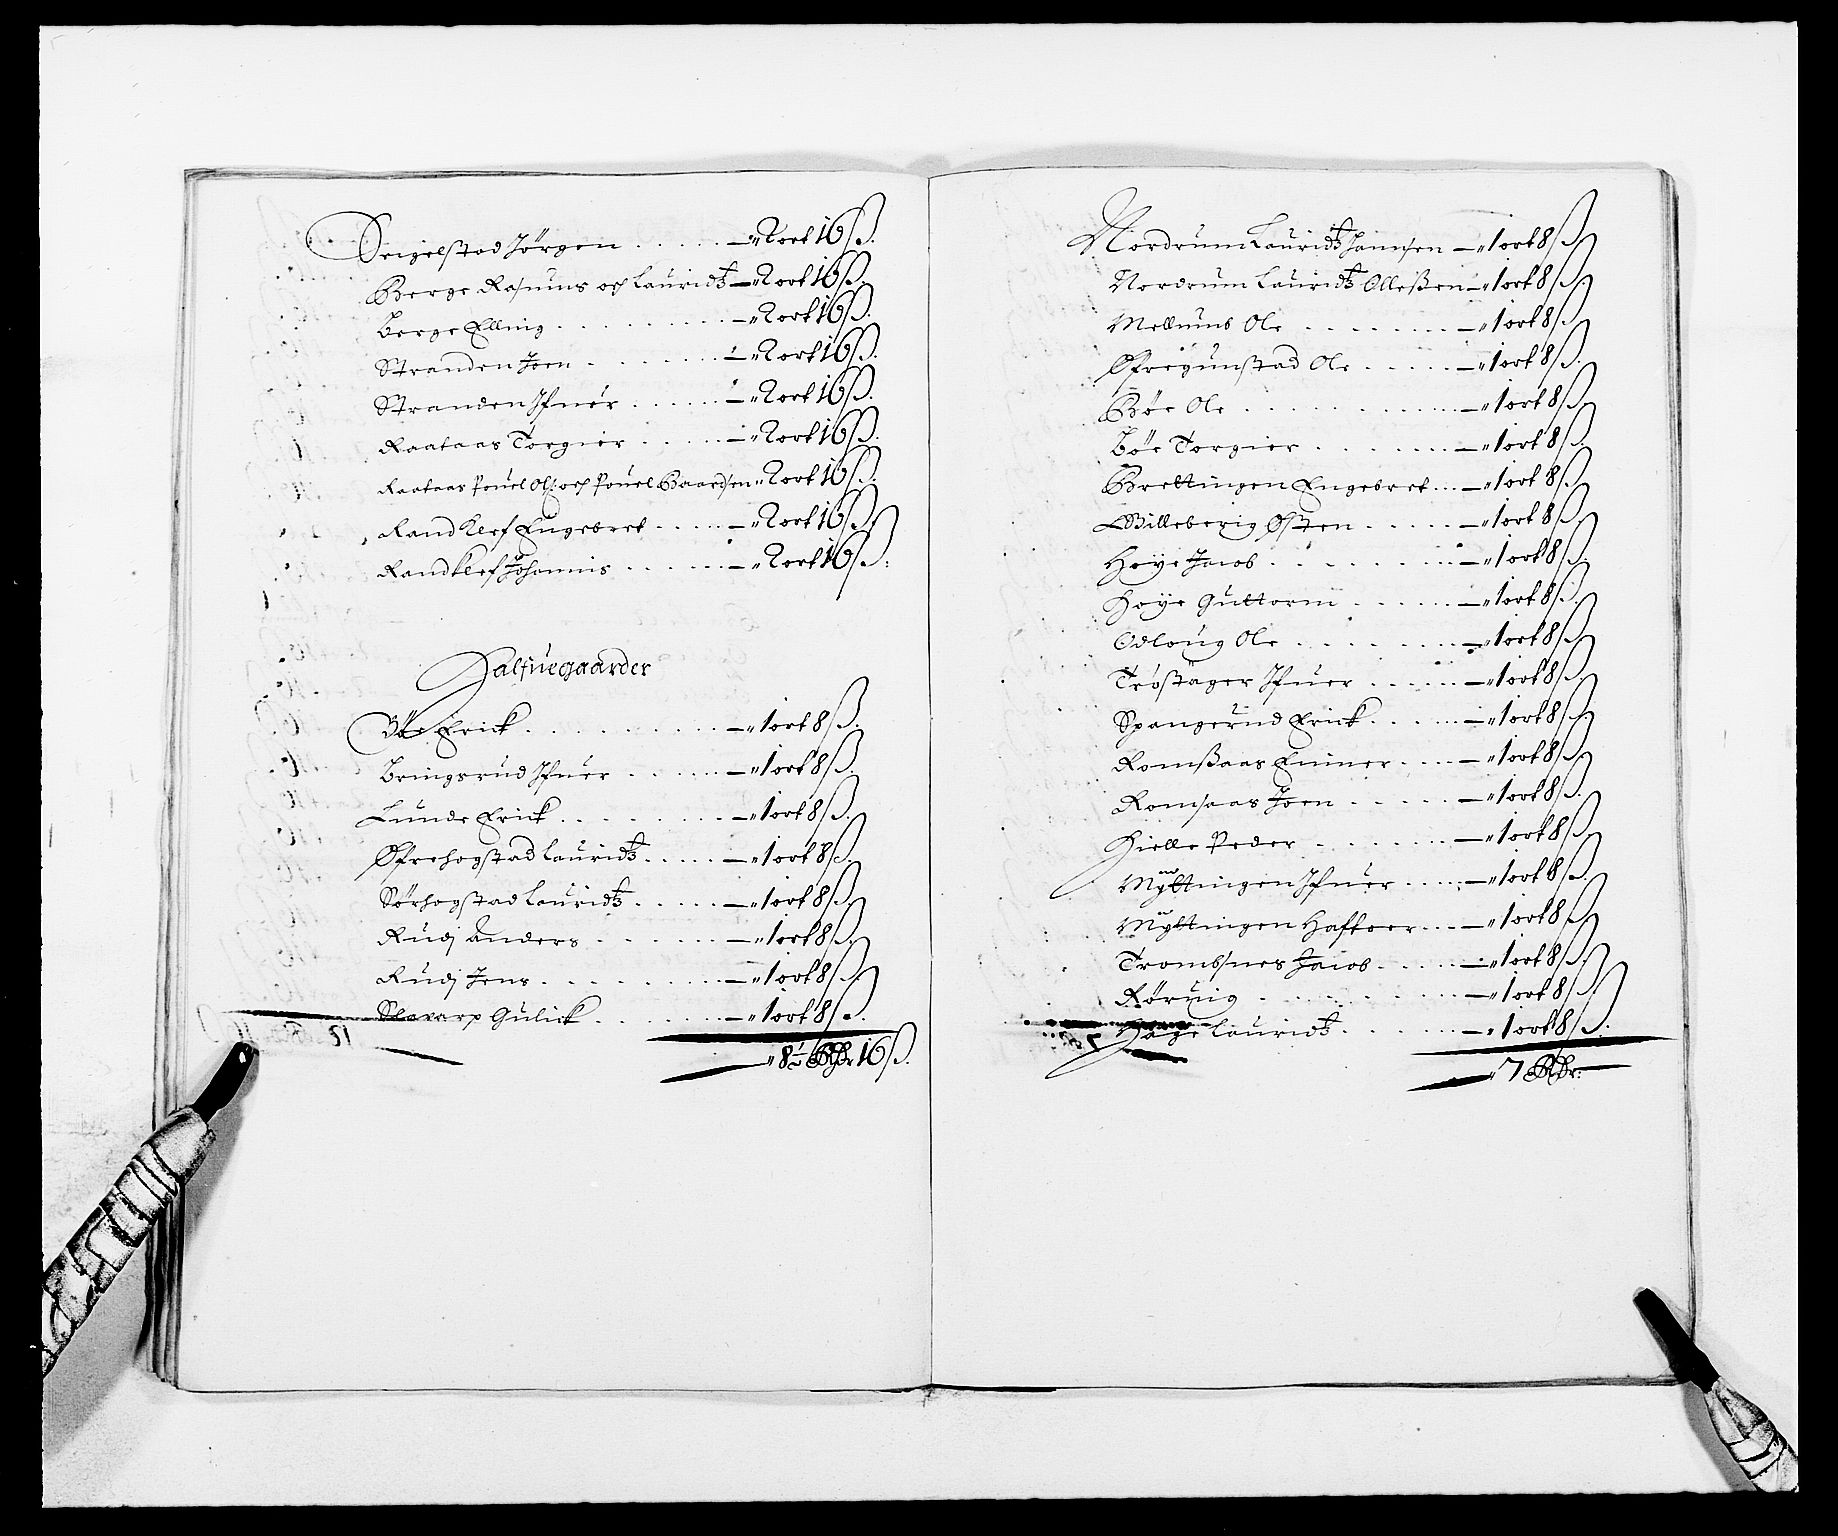 Seigelstad Jörgen . . . . . — " 2 ort 16 ß.
Berge Rasmus och Lauridtz — " 2 ort 16 ß.
Berge Elling . . . . . . . . — " 2 ort 16 ß.
Stranden Joen . . . . . . . — " 2 ort 16 ß.
Stranden Ifuer . . . . . . — " 2 ort 16 ß.
Raataas Torgier . . . . . — " 2 ort 16 ß.
Raataas Pouel Olß: och Pouel Baardsen " 2 ort 16 ß.
Randklef Engebret . . . . . — " 2 ort 16 ß.
Randklef Johannis . . . . . — " 2 ort 16 ß:
Halfuegaarder
Böe Erick . . . . . . . . . — " 1 ort 8 ß.
Bringsrud Ifuer . . . . . . — " 1 ort 8 ß.
Lunde Erick . . . . . . . . — " 1 ort 8 ß.
Øfrehogstad Lauridtz . . . . — " 1 ort 8 ß.
Sörhogstad Lauridtz . . . . . — " 1 ort 8 ß.
Rudj Anders . . . . . . . — " 1 ort 8 ß.
Rudj Jens . . . . . . . . . — " 1 ort 8 ß.
Gulick . . . . . . . — " 1 ort 8 ß.
" 8½ Rdr 16 ß.
Nordrum Lauridtz Jamsen — " 1 ort 8 ß
Nordrum Lauridtz Olleßen — " 1 ort 8 ß.
Mellumb Ole . . . . . . . — " 1 ort 8 ß.
Øfregunstad Ole . . . . . — " 1 ort 8 ß.
Böe Ole . . . . . . . . . . — " 1 ort 8 ß.
Böe Torgier . . . . . . . — " 1 ort 8 ß.
Brettingen Engebret . . . — " 1 ort 8 ß.
Willeberig Østen . . . . . — " 1 ort 8 ß.
Høye Jacob . . . . . . . . — " 1 ort 8 ß.
Høye Guttorm . . . . . . — " 1 ort 8 ß.
Odloug Ole . . . . . . . — " 1 ort 8 ß.
Tröstager Ifuer . . . . . — " 1 ort 8 ß.
Spangerud Erick . . . . . — " 1 ort 8 ß.
Romßaas Einner . . . . — " 1 ort 8 ß.
Romsaas Joen . . . . . . — " 1 ort 8 ß.
Hielle Peder . . . . . . . — " 1 ort 8 ß.
Myttingen Ifuer . . . . . — " 1 ort 8 ß.
Myttingen Haftoer . . . — " 1 ort 8 ß.
Trombsnes Jacob . . . . . — " 1 ort 8 ß.
Røruig . . . . . . . . . — " 1 ort 8 ß.
Hage Lauridtz . . . . . . — " 1 ort 8 ß.
" 7 Rdr: